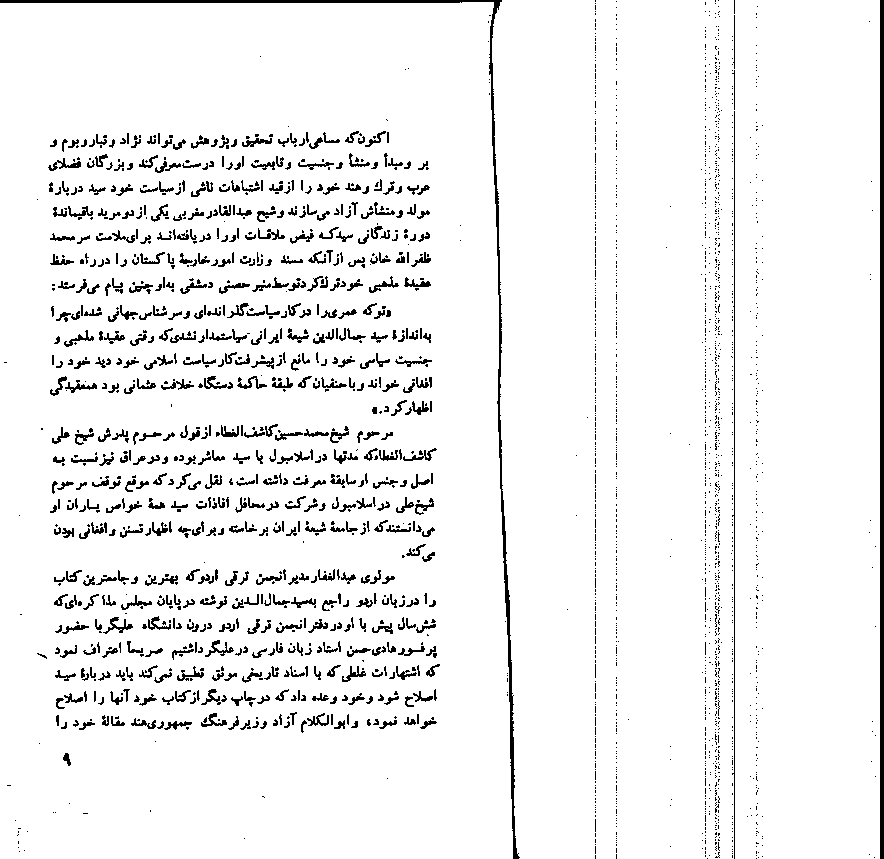 اکنون‌که مساعی‌ارباب تحقیق وپژوهش می‌تواند نژاد وتباروبوم و
بر ومبدأ ومنشأ وجنسیت وتابعیت اورا درست‌معرفی‌کند وبزرگان فضلای
عرب وترك وهند خود را ازقید اشتباهات ناشی ازسیاست خود سید دربارهٔ
مولد ومنشأش آزاد می‌سازند وشیخ عبدالقادرمغربی یکی ازدومرید باقیماندهٔ
دورهٔ زندگانی سیدکه فیض ملاقات اورا دریافته‌اند برای‌ملامت سرمحمد
ظفرالله خان پس ازآنکه مسند وزارت امورخارجهٔ پاکستان را درراه حفظ
عقیدهٔ مذهبی خودترك‌کردتوسط‌منیرحصنی دمشقی به‌اوچنین پیام می‌فرستد:
«توکه عمری‌را درکارسیاست‌گذرانده‌ای وسرشناس‌جهانی شده‌ای‌چرا
به‌اندازهٔ سید جمال‌الدین شیعهٔ ایرانی سیاستمدارنشدی‌که وقتی عقیدهٔ مذهبی و
جنسیت سیاسی خود را مانع ازپیشرفت‌کارسیاست اسلامی خود دید خود را
افغانی خواند وباحنفیان‌که طبقهٔ حاکمهٔ دستگاه خلافت عثمانی بود همعقیدگی
اظهارکرد.»
مرحوم شیخ‌محمدحسین‌کاشف‌الغطاء ازقول مرحوم پدرش شیخ علی
کاشف‌الغطاءکه مدتها دراسلامبول با سید معاشربوده ودرعراق نیزنسبت به
اصل وجنس اوسابقهٔ معرفت داشته است، نقل می‌کردکه موقع توقف مرحوم
شیخ‌علی دراسلامبول وشرکت درمحافل افاذات سید همهٔ خواص یاران او
می‌دانستندکه ازجامعهٔ شیعهٔ ایران برخاسته وبرای‌چه اظهارتسنن وافغانی بودن
می‌کند.
مولوی عبدالغفارمدیرانجمن ترقی اردوکه بهترین وجامعترین‌کتاب
را درزبان اردو راجع به‌سیدجمال‌الدین نوشته درپایان مجلس مذاکره‌ای‌که
شش‌سال پیش با اودردفترانجمن ترقی اردو درون دانشگاه علیگربا حضور
پرفسورهادی‌حسن استاد زبان فارسی درعلیگرداشتیم صریحاً اعتراف نمود
که اشتهارات غلطی‌که با اسناد تاریخی موثق تطبیق نمی‌کند باید دربارهٔ سید
اصلاح شود وخود وعده دادکه درچاپ دیگرازکتاب خود آنها را اصلاح
خواهد نمود، وابوالکلام آزاد وزیرفرهنگ جمهوری‌هند مقالهٔ خود را
۹